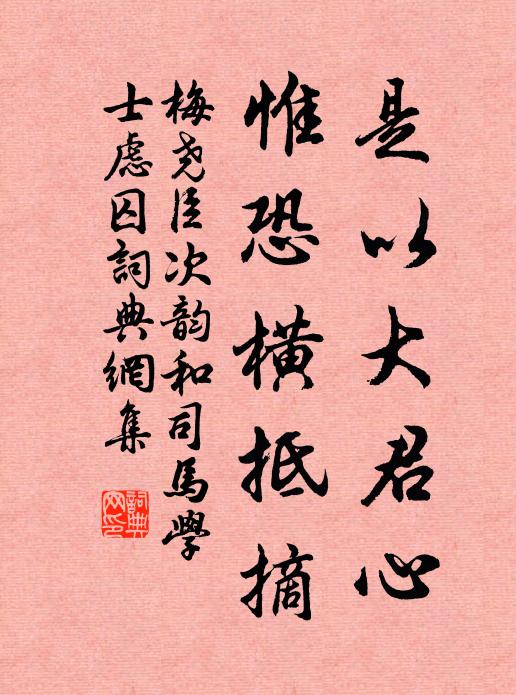 是以大君心
惟恐橫抵摘
梅尧臣次韵和司馬學
士慮囚詞典網集
詞典
网印